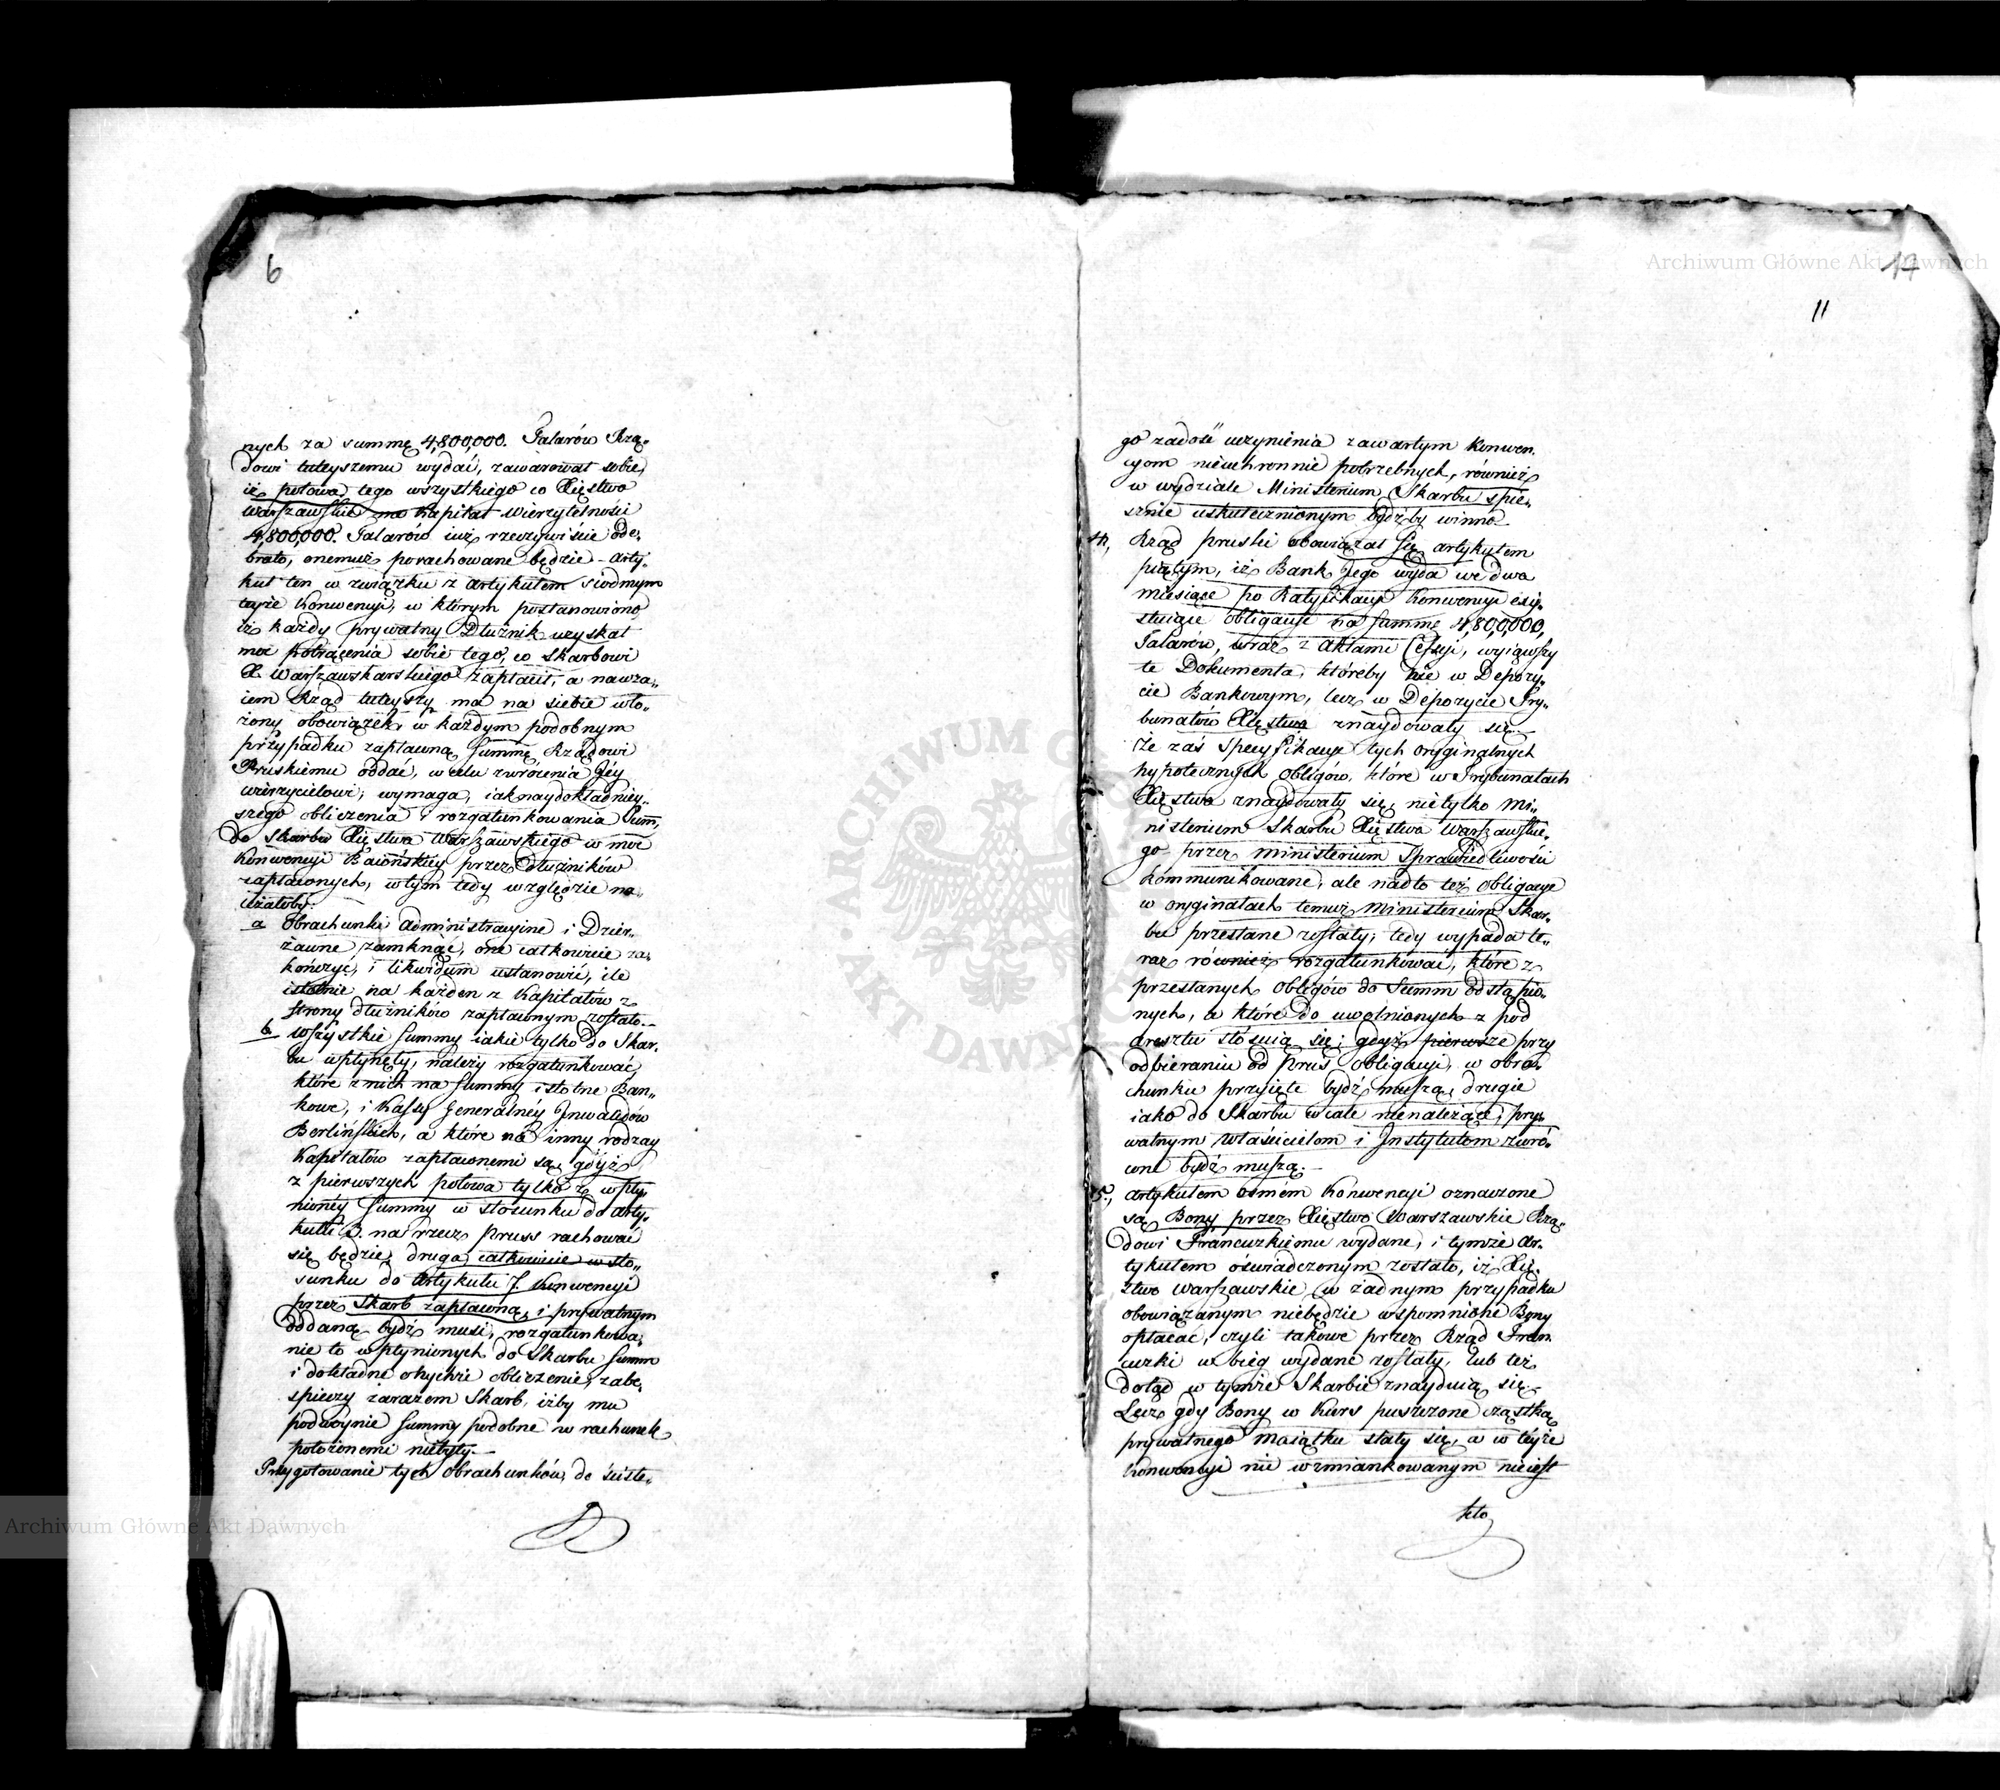 6
nych za summę 4,800,000. Talarów Rzą-
dowi tuteyszemu wydać, zawarował sobie,
iż połowa tego wszystkiego co Xięstwo
Warszawskie na Kapitał wierzytelności
4,800,000. Talarów iuż rzeczywiście ode-
brało, onemuż porachowane będzie - arty-
kuł ten w związku z artykułem siódmym
teyże Konwencyi, w którym postanowiono
iż każdy prywatny Dłużnik uzyskał
moc potrącenia sobie tego, co Skarbowi
X. Warszawskiego zapłacił, a nawza-
iem Rząd tuteyszy ma na siebie wło-
żony obowiązek, w każdym podobnym
przypadku zapłaconą Summę Rządowi
Pruskiemu oddać, w celu zwrócenia Jey
wierzycielowi, wymaga, iaknaydokładniey-
szego obliczenia i rozgatunkowania Sum,
do Skarbu Xięstwa Warszawskiego w moc
Konwencyi Baiońskiey przez Dłużników
zapłaconych, w tym tedy względzie na-
leżałoby:
a Obrachunki administracyine i Dzier-
żawne zamknąć, one całkowicie za-
kończyć, i likwidum ustanowić, ile
istotnie na każden z Kapitałów z
strony dłużników zapłaconym zostało.-
b Wszystkie Summy iakie tylko do Skar-
bu wpłynęły, należy rozgatunkować,
które z nich na Summy istotne Ban-
kowe, i Kassy Generalnéy Jnwalidów
Berlińskich, a które na inny rodzay
Kapitałów zapłaconemi są, gdyż
z pierwszych połowa tylko z wpły-
nionéy Summy w stosunku do arty-
kułu 3. na rzecz Pruss rachować
się będzie, druga całkowicie w sto-
sunku do Artykułu 7. Konwencyi
przez Skarb zapłacona, i prywatnym
oddaną bydź musi, rozgatunkowa-
nie to wpłynionych do Skarbu Summ
i dokładne onychże obliczenie, zabe-
spieczy zarazem Skarb, iżby mu
podwóynie Summy podobne w rachunek
położonemi niebyły.-
Przygotowanie tych obrachunków, do ściśle-
17
11
go zadość uczynienia zawartym Konwen-
cyom nieuchronnie potrzebnych, również
w wydziale Ministerium Skarbu spie-
sznie uskutecznionym bydźby winno.
4., Rząd pruski obowiązał się artykułem
piątym, iż Bank Jego wyda we dwa
miesiące po Ratyfikacyi Konwencyi exy-
stuiące obligacye na Summę 4,800,000,
Talarów, wraz z aktami Cessyi, wyiąwszy
te Dokumenta, któreby nie w Depozy-
cie Bankowym, lecz w Depozycie Try-
bunałów Xięstwa znaydowały się.-
Że zaś specyfikacye tych oryginalnych
hypotecznych obligów, które w Trybunałach
Xięstwa znaydowały się, nietylko Mi-
nisterium Skarbu Xięstwa Warszawskie-
go przez Ministerium Sprawiedliwości
kommunikowane, ale nadto też obligacye
w oryginałach temuż Ministerium Skar-
bu przesłane zostały; tedy wypada te-
raz również rozgatunkować, które z
przesłanych obligów do Summ odstąpio-
nych, a które do uwolnionych z pod
aresztu stósuią się; gdyż pierwsze przy
odbieraniu od Prus obligacyi, w obra-
chunku przyięte bydź muszą, drugie
iako do Skarbu wcale nienależące, pry-
watnym właścicielom i Jnstytutom zwró-
cone bydź muszą.-
5., Artykułem ósmem Konwencyi oznaczone
są Bony przez Xięstwo Warszawskie Rzą-
dowi Francuzkiemu wydane, i tymże Ar-
tykułem oświadczonym zostało, iż Xię-
stwo Warszawskie, w żadnym przypadku
obowiązanym niebędzie wspomnione Bony
opłacać, czyli takowe przez Rząd Fran-
cuzki w bieg wydane zostały, lub też
dotąd w tymże Skarbie znayduią się.-
Lecz gdy Bony w Kurs puszczone cząstką
prywatnego maiątku stały się, a w teyże
Konwencyi nie wzmiankowanym nieiest
kto
ARCHIWUM GŁÓWNE AKT DAWNYCH
Archiwum Główne Akt Dawnych
Archiwum Główne Akt Dawnych